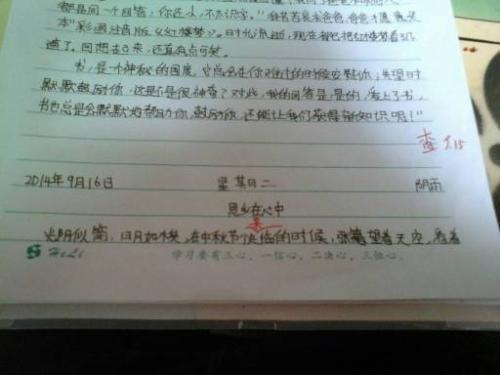 都是同一个回答:你还小,不太识字。"
本"彩图注音版《红楼梦》。时光流逝,现在我已把红楼梦看3几
遍了。回想去日来,还真有点可笑。
书,是个神秘的国度,它总会在你难过的时候安慰你;失望时
默默鼓励你,这是不是很神奇?对此,我的回答是:是的,爱上了书,
书也总是会默默地帮助你,鼓励你,还能让我们获得新知识呢!"
查 9.15
2014年9月16日 星期二 阴雨
思乡在心中
光阴似箭,日月如梭,在中秋节 的时候,张 望着天空,看着
HeLi 学习要有三心,一信心,二决心,三恒心。